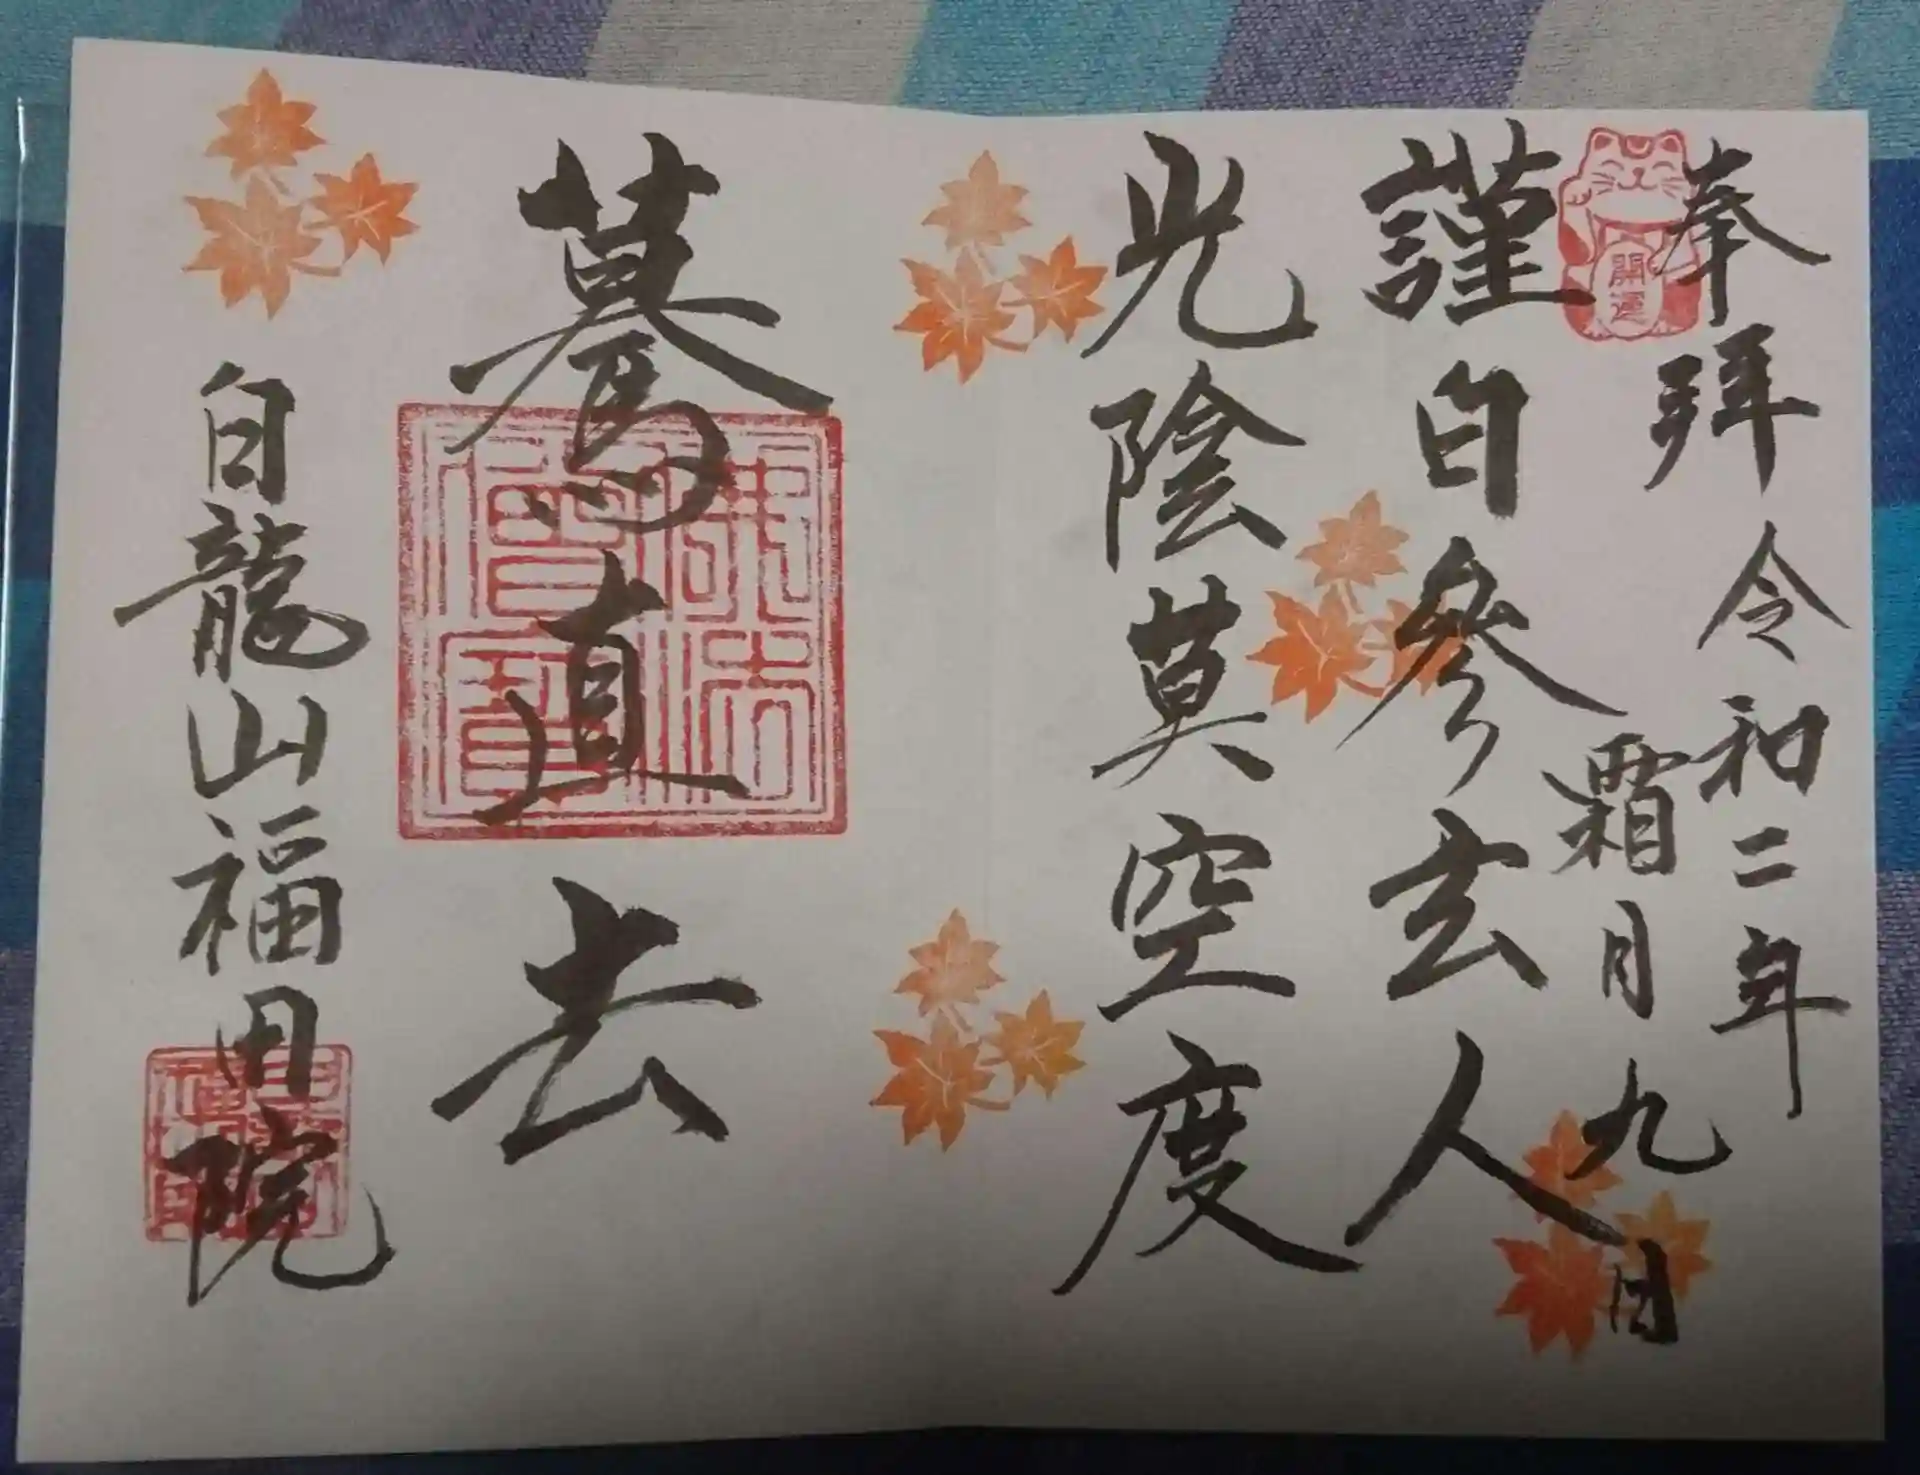 奉拜 令和二年
霜月九日
開運
謹白參玄人
光陰莫空度
驀直去
佛法僧寶
白龍山福田院